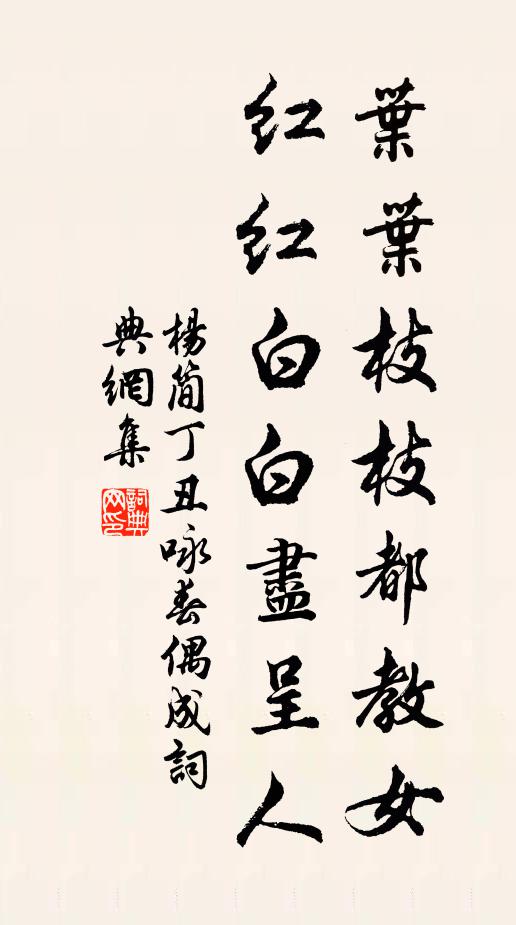 葉葉枝枝都教女
紅紅白白盡呈人
楊簡丁丑咏春偶成詞
典網集
詞典網印